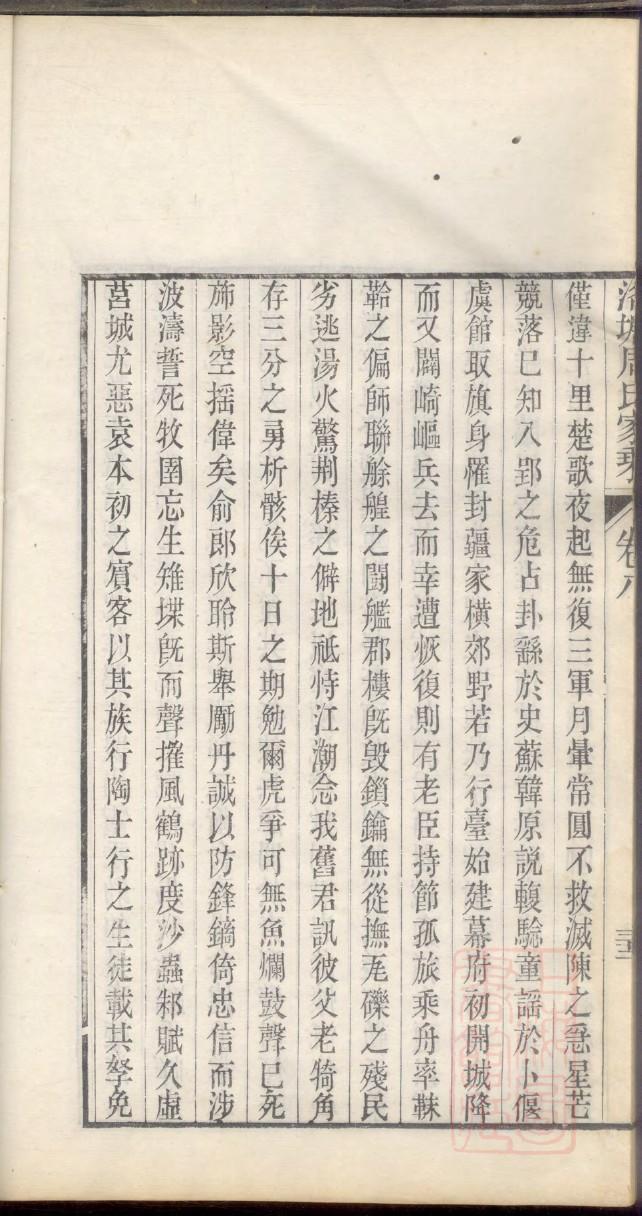 洛塘周氏家乘
卷八
三十二
僅違十里楚歌夜起無復三軍月暈常圓不救滅陳之急星芒
競落已知入郢之危占卦繇於史蘇韓原說輹驗童謠於卜偃
虞館取旗身罹封疆家橫郊野若乃行臺始建幕府初開城降
而又闢崎嶇兵去而幸遭恢復則有老臣持節孤旅乘舟率韎
韐之偏師聯艅艎之鬪艦郡樓旣毀鎖鑰無從撫瓦礫之殘民
劣逃湯火驚荆榛之僻地祗恃江潮念我舊君訊彼父老犄角
存三分之勇析骸俟十日之期勉爾虎爭可無魚爛鼓聲已死
斾影空搖偉矣俞郎欣聆斯舉勵丹誠以防鋒鏑倚忠信而涉
波濤誓死牧圉忘生雉堞旣而聲摧風鶴跡度沙蟲邾賦久虛
莒城尤惡袁本初之賓客以其族行陶士行之生徒載其孥免